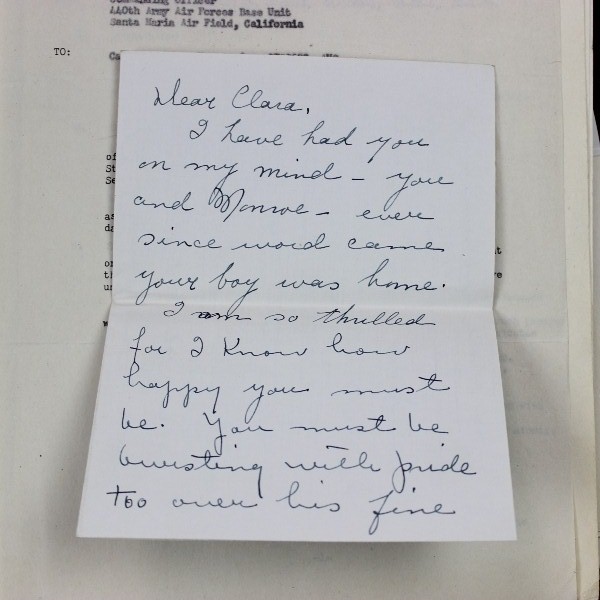 440th Army Air Forces Base Unit
Santa Maria Air Field, California
TO:
Dear Clara,
I have had you
on my mind - you
and Monroe - ever
since word came
your boy was home.
I am so thrilled
for I know how
happy you must
be. You must be
bursting with pride
too over his fine